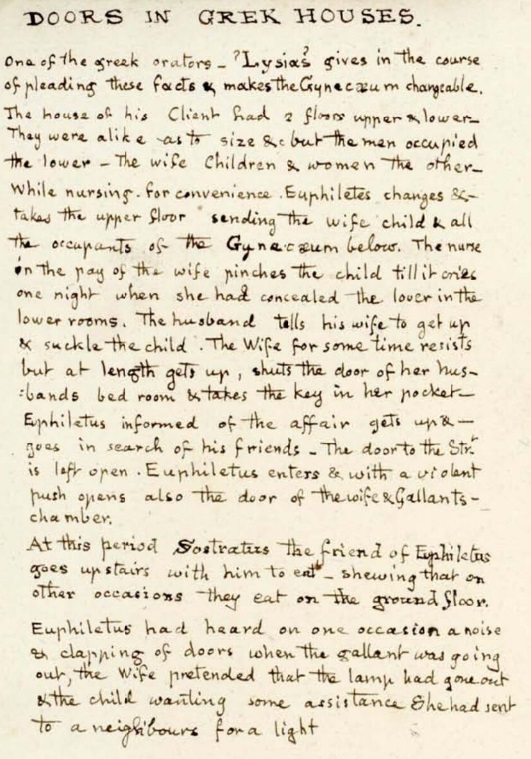 DOORS IN GREK HOUSES.
One of the greek orators - ?Lysias? gives in the course
of pleading these facts & makes the Gynecæum changeable.
The house of his Client had 2 floors upper & lower-
They were alike as to size &c but the men occupied
the lower - The wife Children & women the other-
While nursing. for convenience. Euphiletes changes &-
takes the upper floor sending the wife child & all
the occupants of the Gynecæum below. The nurse
in the pay of the wife pinches the child till it cries
one night when she had concealed the lover in the
lower rooms. The husband tells his wife to get up
& suckle the child. The Wife for some time resists
but at length gets up, shuts the door of her hus-
:bands bed room & takes the key in her pocket-
Ephiletus informed of the affair gets up & -
goes in search of his friends - The door to the Str.t
is left open. Euphiletus enters & with a violent
push opens also the door of the wife & Gallants-
chamber.
At this period Sostratus the friend of Euphiletus
goes upstairs with him to eat - shewing that on
other occasions they eat on the ground floor.
Euphiletus had heard on one occasion a noise
& clapping of doors when the gallant was going
out, the Wife pretended that the lamp had gone out
& the child wanting some assistance She had sent
to a neighbours for a light